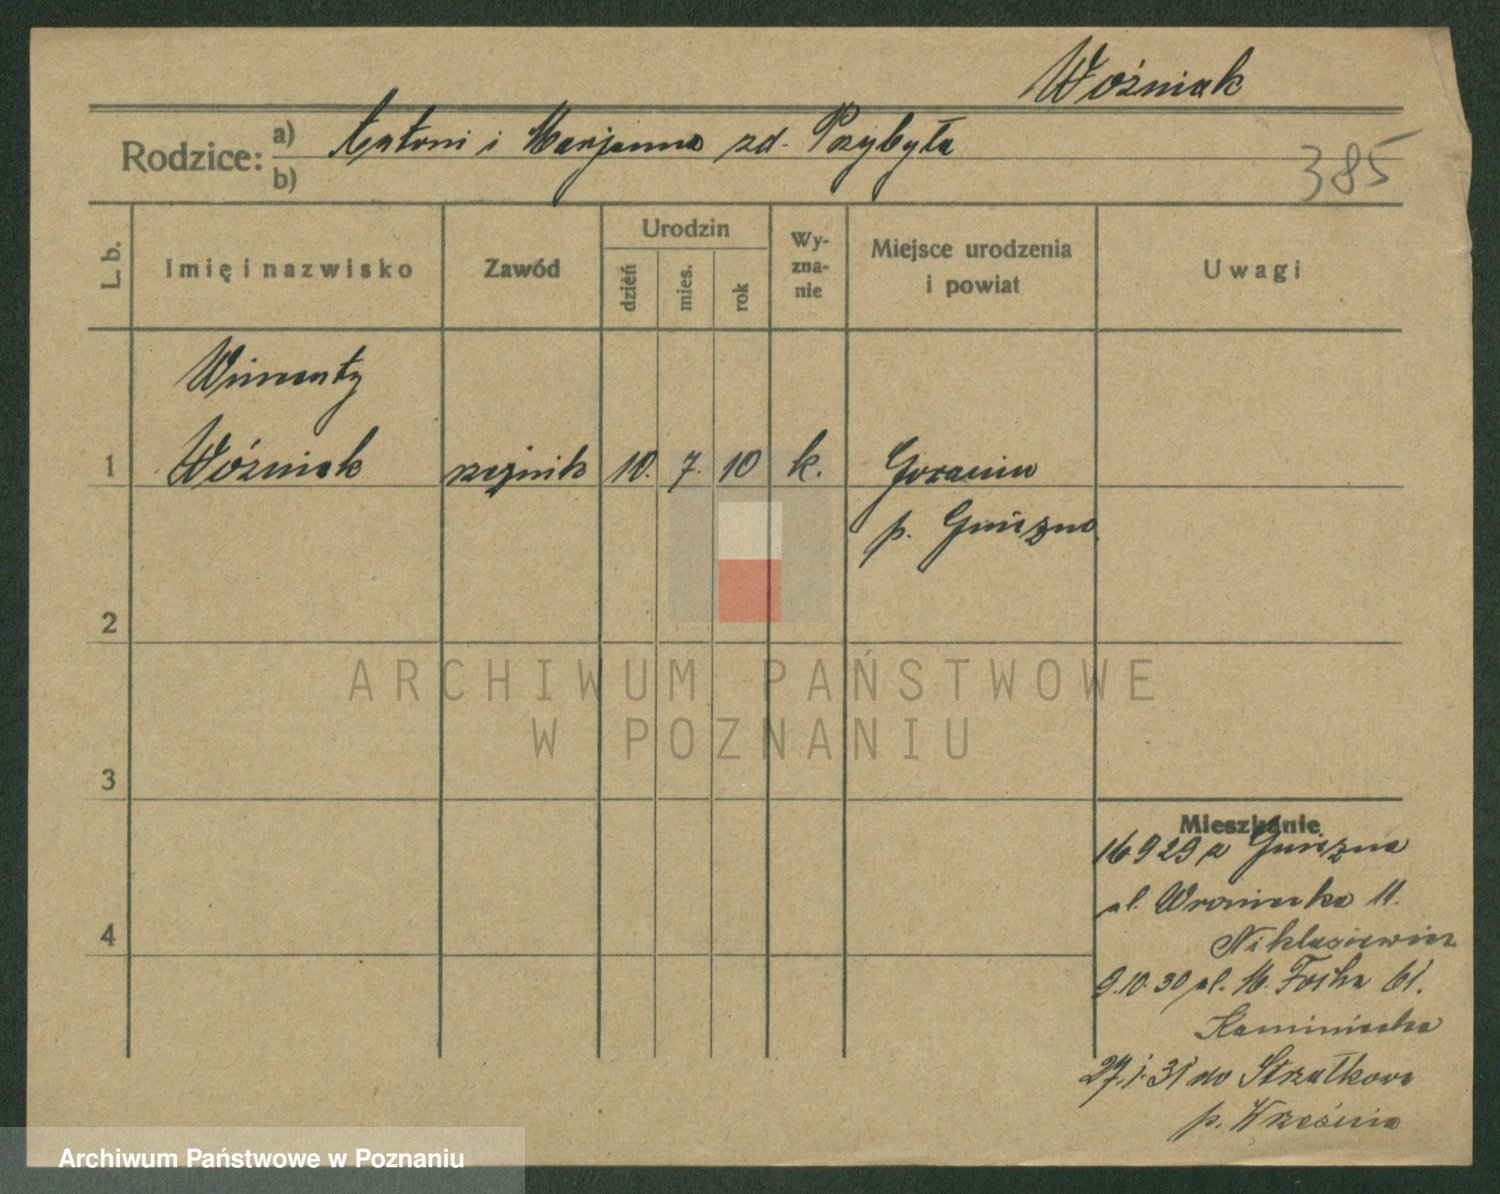 Woźniak
Rodzice: a) Antoni i Marjanna zd. Przybyła
b)
385
L. b.
Imię i nazwisko
Zawód
Urodzin
dzień
mies.
rok
Wy-
zna-
nie
Miejsce urodzenia
i powiat
Uwagi
Wincenty
1 Woźniak rzeźnik 10. 7. 10 k. Goranin
p. Gniezno.
2
3
4
Mieszkanie
16 9 29 z Gniezna
ul. Wroniecka 11.
Niklasiewicz
9.10.30 ul. M. Focha 61.
Kaminiecka
27.1.31 do Strzałkowa
p. Września
ARCHIWUM PAŃSTWOWE
W POZNANIU
Archiwum Państwowe w Poznaniu